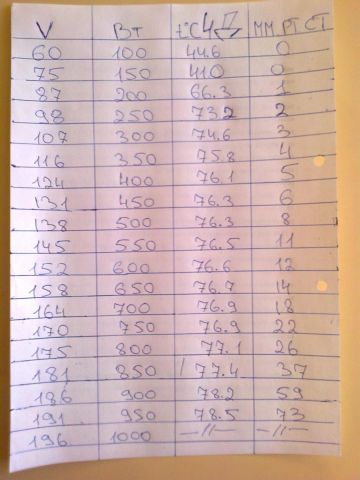 V Вт t°C ЧД ММ.РТ СТ
60 100 44.6 0
75 150 41.0 0
87 200 66.3 1
98 250 73.2 2
107 300 74.6 3
116 350 75.8 4
124 400 76.1 5
131 450 76.3 6
138 500 76.3 8
145 550 76.5 11
152 600 76.6 12
158 650 76.7 14
164 700 76.9 18
170 750 76.9 22
175 800 77.1 26
181 850 77.4 37
186 900 78.2 59
191 950 78.5 73
196 1000 —//— —//—